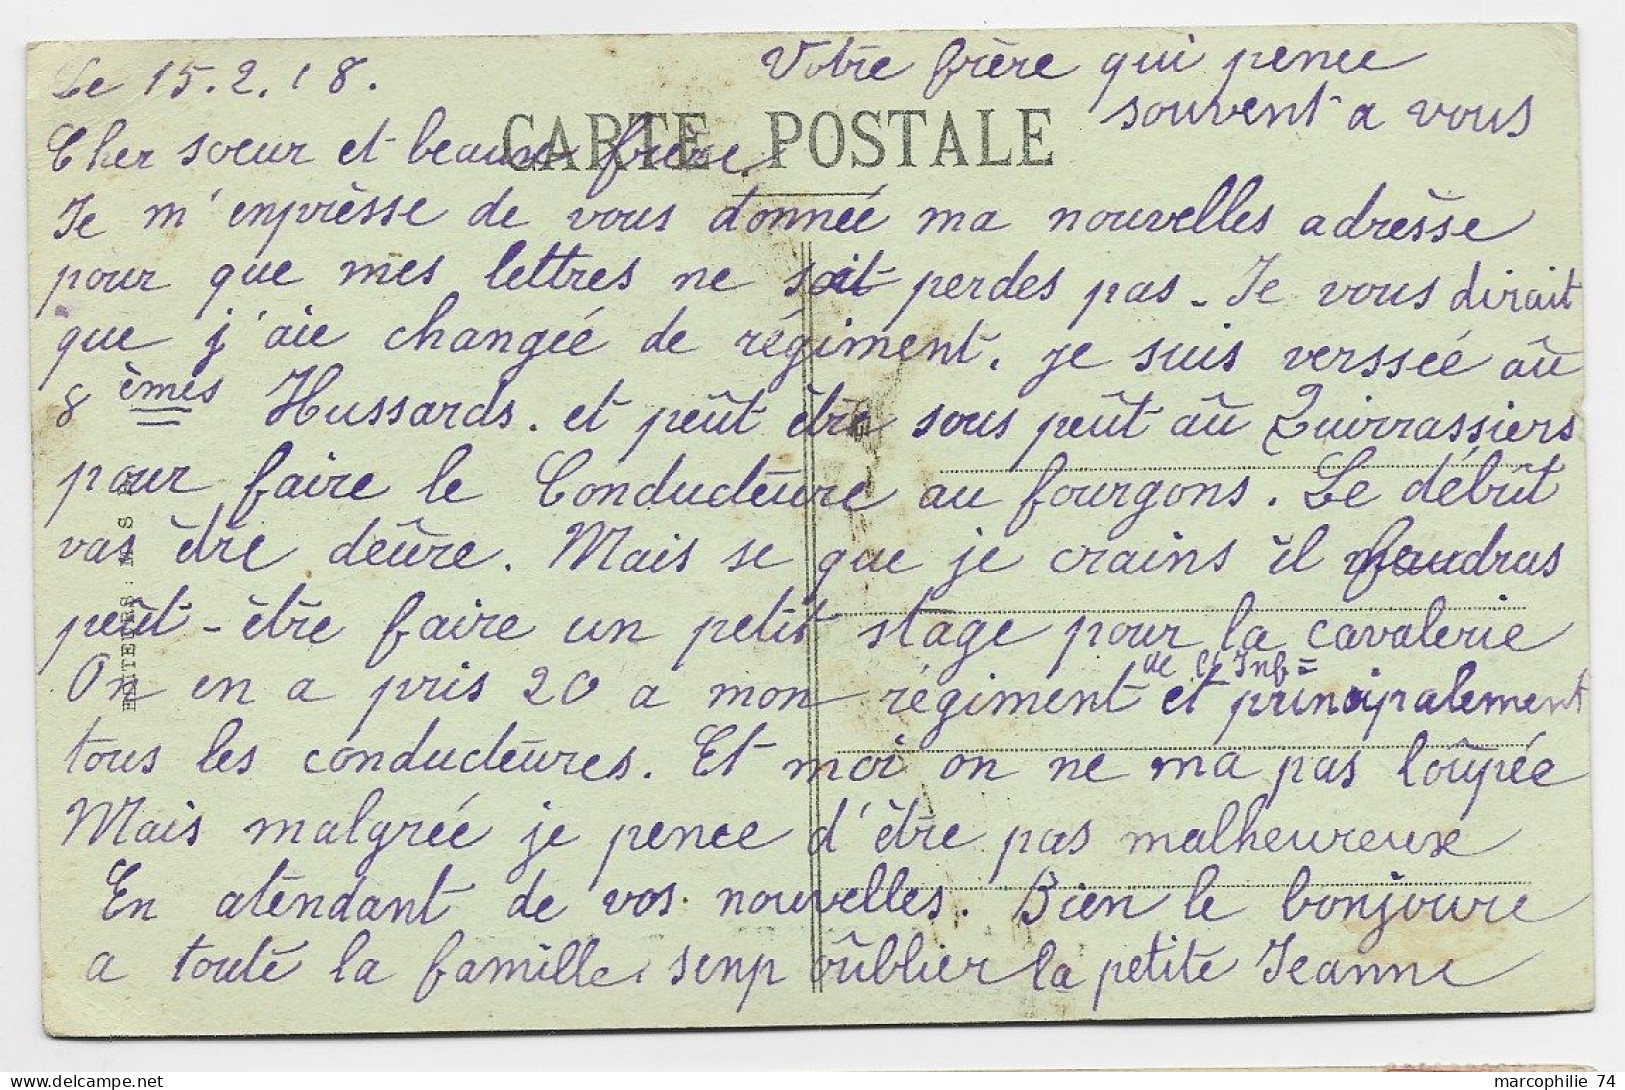 Le 15.2.18.
Votre frère qui pence
souvent a vous
CARTE POSTALE
Cher soeur et beaux frère.
Je m'enprèsse de vous donnée ma nouvelles adrèsse
pour que mes lettres ne soit perdes pas - Je vous dirait
que j'aie changée de régiment. je suis verssée aû
8 èmes Hussards. et peût être sous peût aû Quirrassiers
pour faire le Conducteure au fourgons. Le débût
vas être deûre. Mais se que je crains il faudras
peût-être faire un petit stage pour la cavalerie
On en a pris 20 a mon régiment de l'Inf= et principalement
tous les conducteures. Et moi on ne ma pas loûpée
Mais malgrée je pence d'être pas malheureux
En atendant de vos nouvelles. Bien le bonjoure
a toute la famille, senp oûblier la petite Jeanne
marcophilie 74